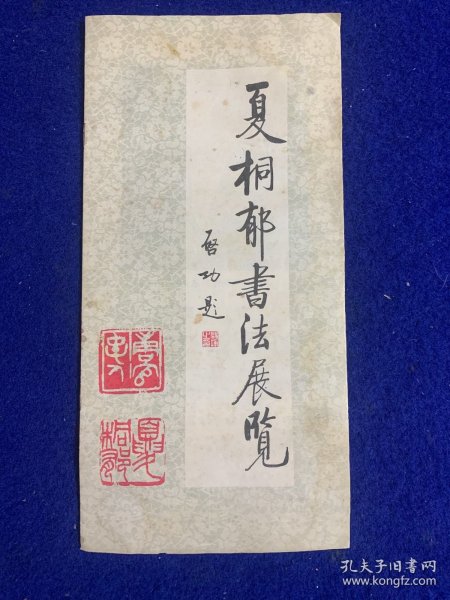 夏桐郁書法展覽
啓功題
夏桐郁
孔夫子旧书网
www.kongfz.com